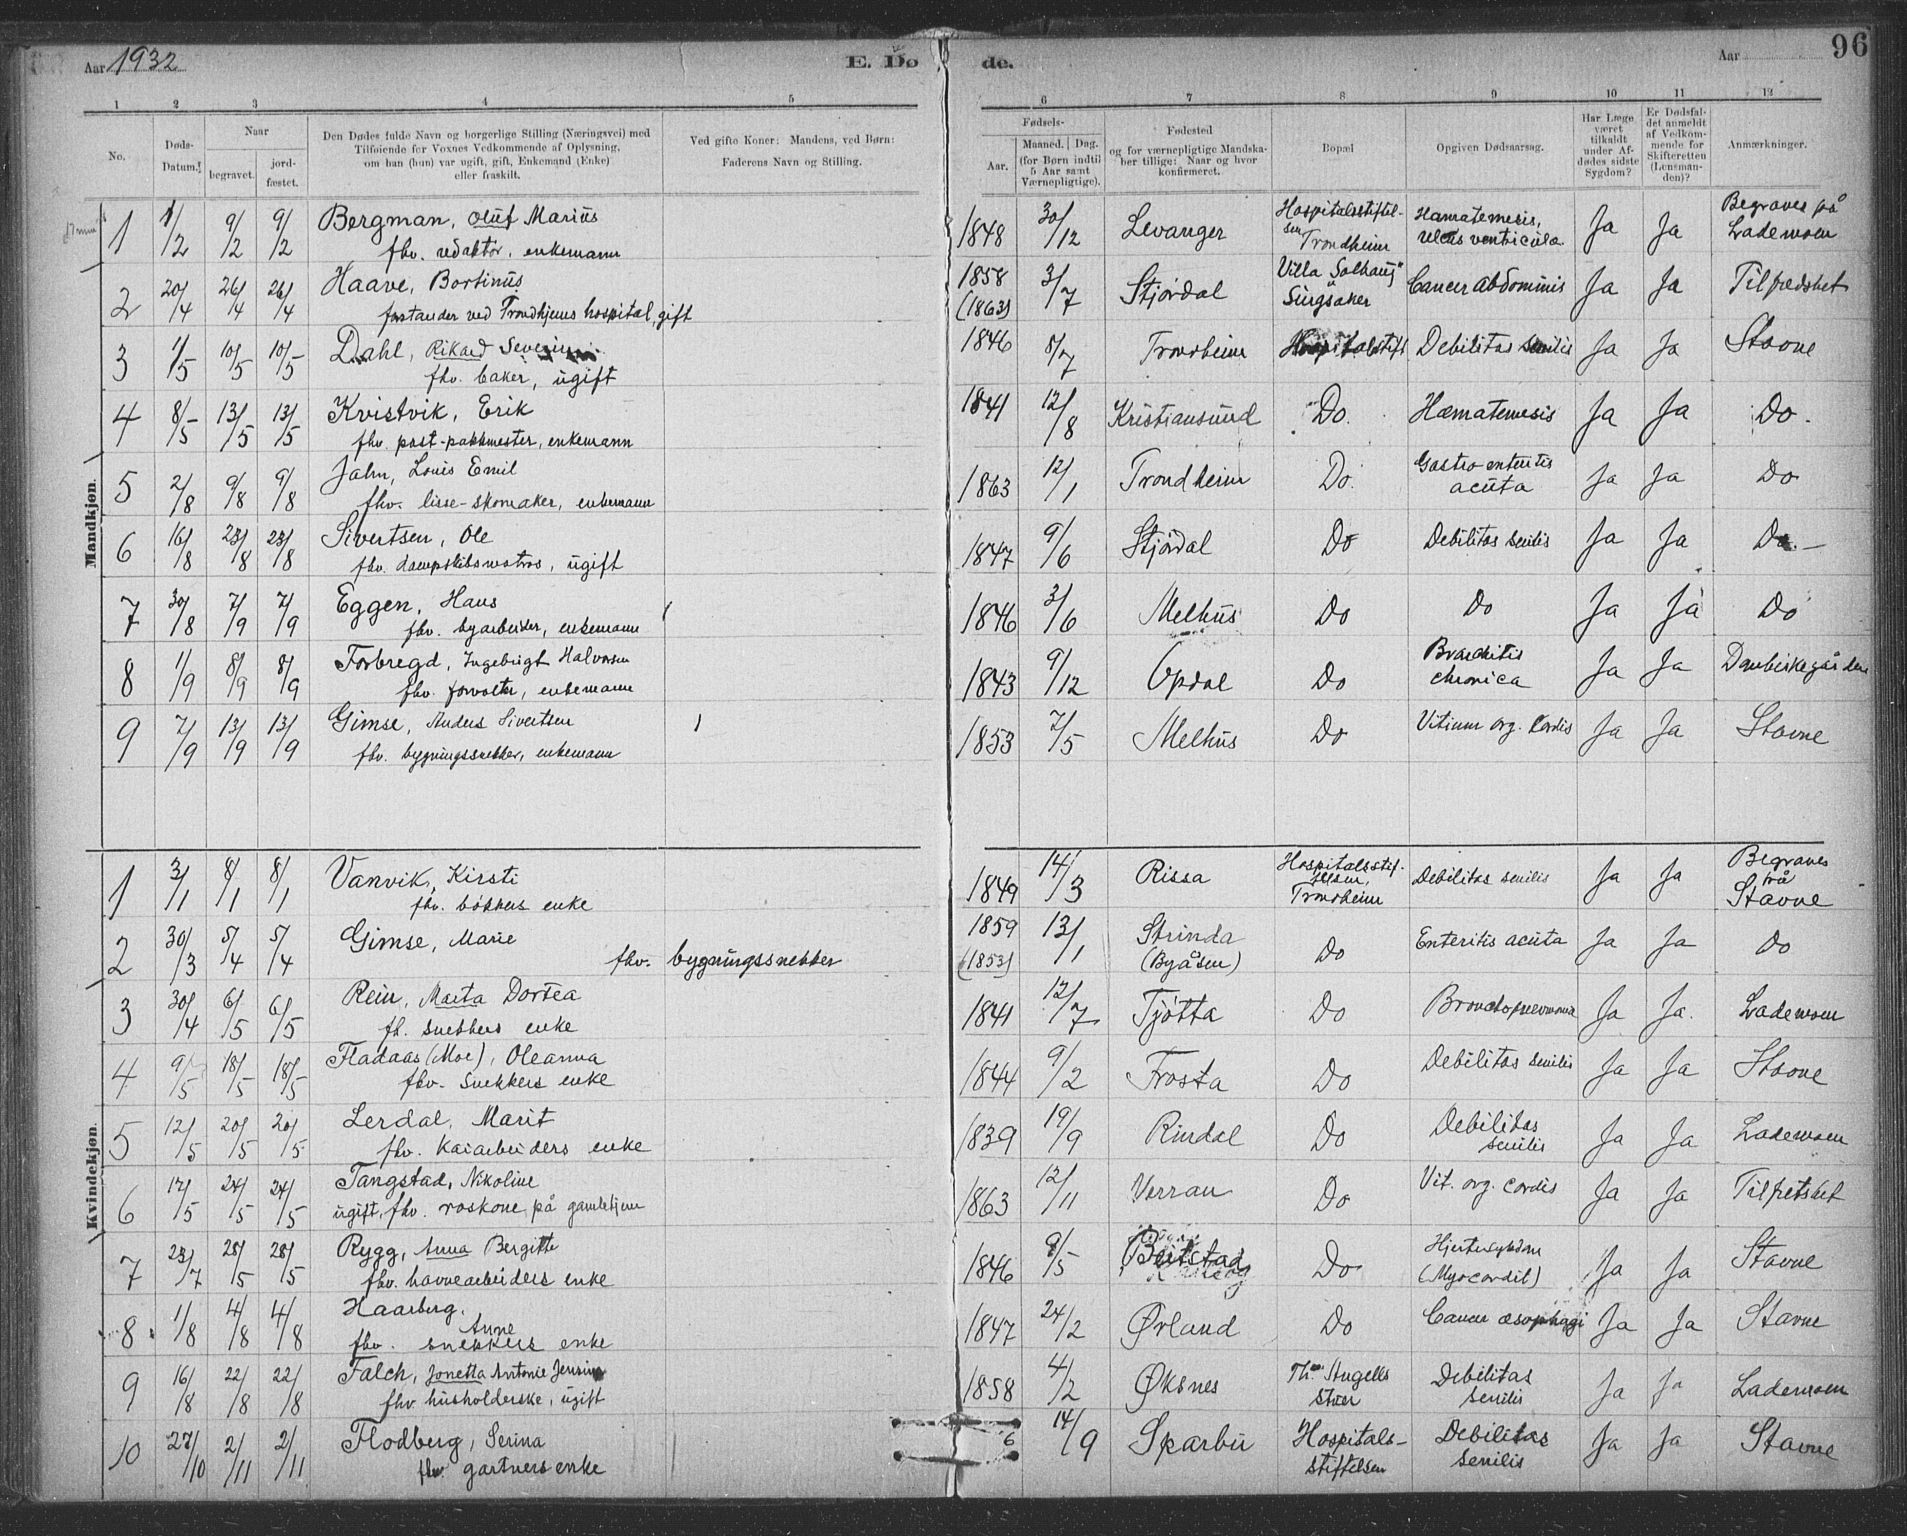 Aar 1932 E. Dø de. Aar 96
1 2 3 4 5 6 7 8 9 10 11 12
No.
Døds-
Datum.
Naar
begravet.
jord-
fæstet.
Den Dødes fulde Navn og borgerlige Stilling (Næringsvei) med
Tilføiende for Voxnes Vedkommende af Oplysning,
om han (hun) var ugift, gift, Enkemand (Enke)
eller fraskilt.
Ved gifte Koner: Mandens, ved Børn:
Faderens Navn og Stilling.
Fødsels-
Aar.
Maaned. Dag.
(for Børn indtil
5 Aar samt
Værnepligtige).
Fødested
og for værnepligtige Mandska-
ber tillige: Naar og hvor
konfirmeret.
Bopæl
Opgiven Dødsaarsag.
Har Læge
været
tilkaldt
under Af-
dødes sidste
Sygdom?
Er Dødsfal-
det anmeldt
af Vedkom-
mende for
Skifteretten
(Lensman-
den)?
Anmærkninger.
Mandkjøn.
1 1/2 9/2 9/2 Bergman, Oluf Marius
fhv. redaktør, enkemann
1848 30/12 Levanger Hospitalsstiftel-
sen Trondheim
Hæmatemesis,
ulcus ventricula
Ja Ja Begraves på
Lademoen
2 20/4 26/4 26/4 Haave, Bortinus
forstander ved Trondhjems hospital, gift
1858
(1863)
3/7 Stjørdal Villa "Solhaug"
Surgsaker
Cancer Abdominis Ja Ja Tilfredshet
3 1/5 10/5 10/5 Dahl, Rikard Severin
fhv. baker, ugift
1846 8/7 Trondheim Hospitalstift Debilitas senilis Ja Ja Stavne
4 8/5 13/5 13/5 Kvistvik, Erik
fhv. post-pakkmester, enkemann
1841 12/8 Kristiansund Do. Hæmatemesis Ja Ja Do.
5 2/8 9/8 9/8 Jahn, Louis Emil
fhv. lisse-skomaker, enkemann
1863 12/1 Trondheim Do. Gastro enteritis
acuta
Ja Ja Do
6 16/8 23/8 23/8 Sivertsen, Ole
fhv. dampskibsmatros, ugift
1847 9/6 Stjørdal Do Debilitas senilis Ja Ja Do. —
7 30/8 7/9 7/9 Eggen, Hans
fhv. byarbeider, enkemann
1846 3/6 Melhus Do Do Ja Ja Do
8 1/9 8/9 8/9 Forbregd, Ingebrigt Halvorsen
fhv. forvalter, enkemann
1843 9/12 Opdal Do Bronchitis
chronica
Ja Ja
9 7/9 13/9 13/9 Gimse, Anders Sivertsen
fhv. bygningssnekker, enkemann
1853 7/5 Melhus Do Vitium org. Cordis Ja Ja Stavne
Kvindekjøn.
1 3/1 8/1 8/1 Vanvik, Kirsti
fhv. bøkkers enke
1849 14/3 Rissa Hospitalsstif-
telsen,
Trondheim
Debilitas senilis Ja Ja Begraves
på
Stavne
2 30/3 5/4 5/4 Gimse, Marie
fhv. bygningssnekker
1859
(1853)
13/1 Strinda
(Byåsen)
Do Enteritis acuta Ja Ja Do
3 30/4 6/5 6/5 Rein, Marta Dortea
fh. snekkers enke
1841 12/7 Tjøtta Do Bronchopneumonia Ja Ja. Lademoen
4 9/5 18/5 18/5 Fladaas (Moe), Oleanna
fhv. Snekkers enke
1844 9/2 Frosta Do Debilitas senilis Ja Ja Stavne
5 12/5 20/5 20/5 Lerdal, Marit
fhv. Kaiarbeiders enke
1839 19/9 Rindal Do Debilitas
senilis
Ja Ja Lademoen
6 17/5 24/5 24/5 Tangstad, Nikoline
ugift, fhv. roskone på gamlehjem
1863 12/11 Verran Do Vit. org. cordis Ja Ja Tilfretshet
7 23/7 28/5 28/5 Rygg, Anna Bergitte
fhv. havnearbeiders enke
1846 9/5 Beitstad Do Hjertesykdom
(Myocardit)
Ja Ja Stavne
8 1/8 4/8 4/8 Haarberg,
Anne
fhv. snekkers enke
1847 24/2 Ørland Do Cancer æsophagi Ja Ja Stavne
9 16/8 22/8 22/8 Falch, Jonetta Antonie Jensine
fhv husholderske, ugift
1858 4/2 Øksnes Ths Angells
stuer
Debilitas
senilis
Ja Ja Lademoen
10 27/10 2/11 2/11 Flodberg, Serina
fhv gartners enke
6 14/9 Sparbu Hospitals-
stiftelsen
Debilitas
senilis
Ja Ja Stavne